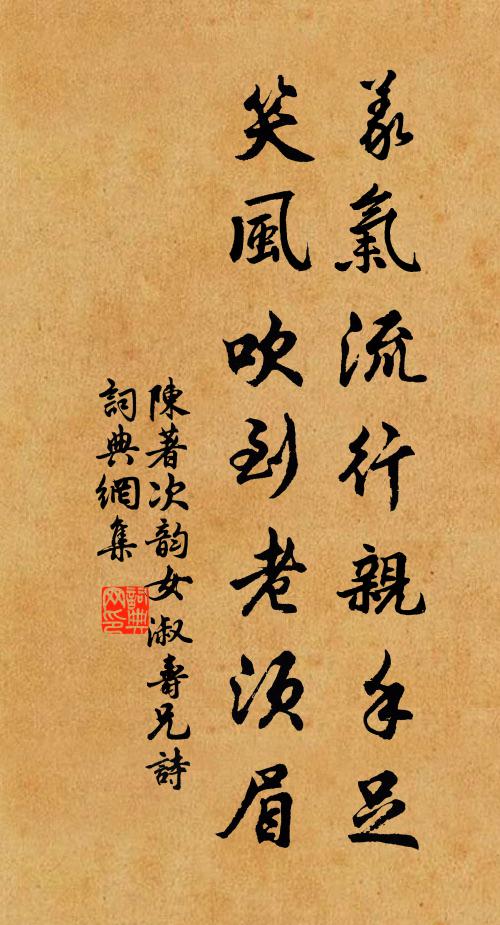 義氣流行親手足
笑風吹到老須眉
陳著次韵女淑壽兄詩
詞典網集
詞典网印